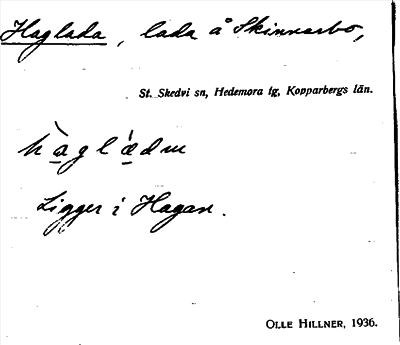 Haglada, lada å Skinnarbo,
St. Skedvi sn, Hedemora tg, Kopparbergs län.
Ligger i Hagan.
OLLE HILLNER, 1936.